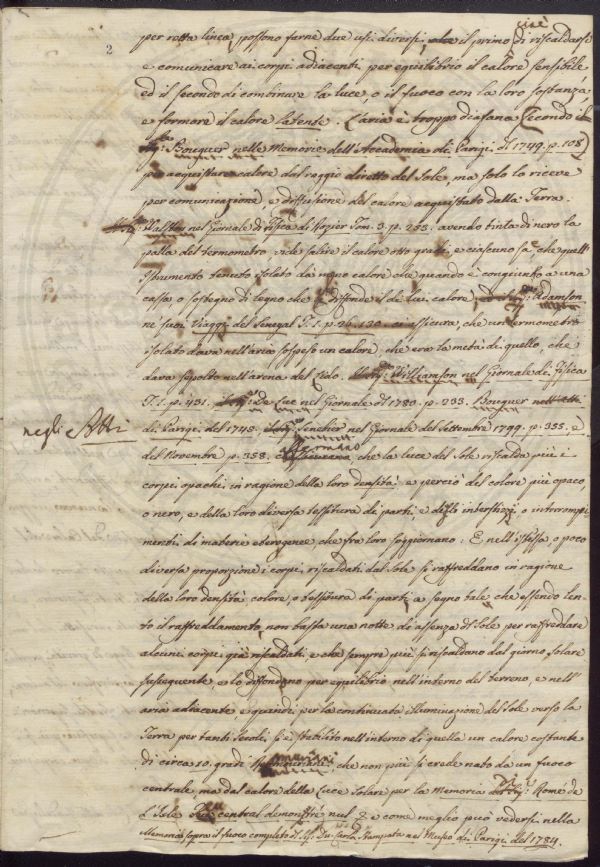 2
per retta linea, possono farne due usi diversi, il primo cioè di riscaldarsi
e comunicare ai corpi adiacenti per equilibrio il calore sensibile,
ed il secondo di combinare la luce, o il fuoco con la loro sostanza,
e formare il calore latente. L'aria è troppo diafana (secondo
Bouguer nelle Memorie dell'Accademia di Parigi di 1749. p. 108)
per acquistare calore dal raggio diretto del Sole, ma solo lo riceve
per comunicazione, e diffusione del calore acquistato dalla Terra.
nel Giornale di Fisica di Rozier Tom. 3. p. 255. avendo tinta di nero la
palla del termometro vide salire il calore otto gradi, e ciascuno sa che quell'
Istrumento tenuto isolato dà meno calore che quando è congiunto a una
cassa o sostegno di legno che diffonde il di lui calore, Adamson
ne' suoi Viaggi del Senegal T. 1. p. 26. 130. assicura, che un termometro
isolato dava nell'aria sospeso un calore, che era la metà di quello, che
dava sepolto nell'arena del lido. Williamson nel Giornale di Fisica
T. 1. p. 431. De Luc nel Giornale di 1780. p. 233. Bouguer
negli Atti
di Parigi del 1748. Senebier nel Giornale del Settembre 1799. p. 355. e
del Novembre p. 358. che la luce del Sole riscalda più i
corpi opachi in ragione della loro densità e perciò del colore più opaco,
o nero, e della loro diversa tessitura di parti, e degl'interstizj, o interrompi-
menti di materie eterogenee che fra loro soggiornano: E nell'istessa, o poco
diversa proporzione i corpi riscaldati dal Sole si raffreddano in ragione
della loro densità, colore, o tessitura di parti, a segno tale che essendo len-
to il raffreddamento, non basta una notte di assenza di Sole per raffreddare
alcuni corpi già riscaldati, e che sempre più si riscaldano dal giorno solare
susseguente, e lo diffondono per equilibrio nell'interno del terreno, e nell'
aria adiacente e quindi per la continuata illuminazione del Sole verso la
Terra per tanti Secoli, si è stabilito nell'interno di quella un calore costante
di circa 10. gradi che non più si crede nato da un fuoco
centrale, ma dal calore della Luce Solare per la Memoria di Romé de
L'Isle central demontré nul e come meglio può vedersi nella
Memoria sopra il fuoco completo di Sig. Du Carla stampata nel Museo di Parigi del 1784.